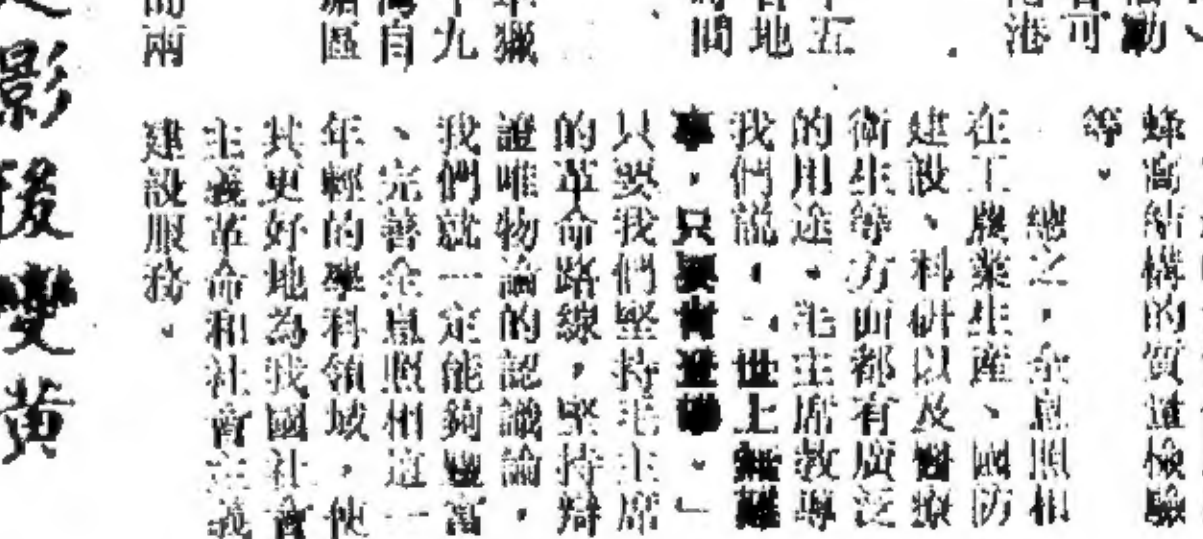 蜂窩結構的質量檢驗
等。
總之，全息照相
在工農業生產、國防
建設、科研以及醫療
衛生等方面都有廣泛
的用途。毛主席教導
我們說：「世上無難
事，只要肯登攀。」
只要我們堅持毛主席
的革命路線，堅持辯
證唯物論的認識論，
我們就一定能夠豐富
、完善全息照相這一
年輕的學科領域，使
其更好地為我國社會
主義革命和社會主義
建設服務。
影後雙黃